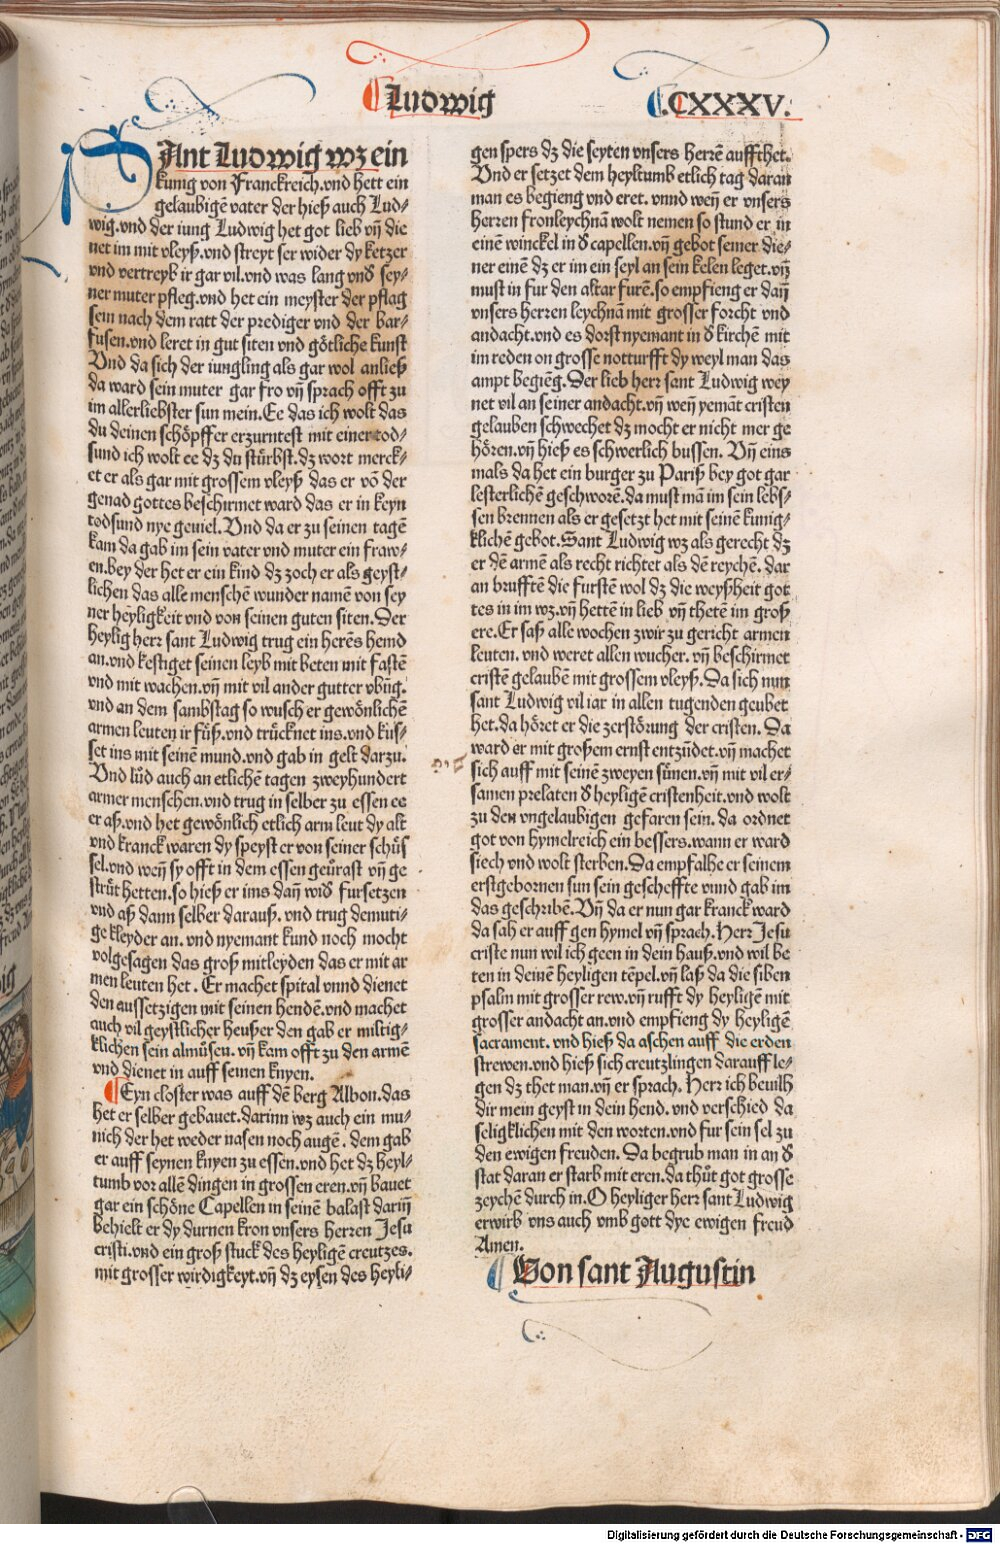 Ludwig
.CXXXV.
SAnt Ludwig wz ein
kunig von Franckreich.vnd hett ein
gelaubigē vater der hieß auch Lud⸗
wig.vnd der iung Ludwig het got lieb vn̄ die
net im mit vleyß.vnd streyt ser wider dy ketzer
vnd vertreyb ir gar vil.vnd was lang vnd̄ sey⸗
ner muter pfleg.vnd het ein meyster der pflag
sein nach dem ratt der prediger vnd der bar⸗
fusen.vnd leret in gut siten vnd götliche kunst
Vnd da sich der iungling als gar wol anließ
da ward sein muter gar fro vn̄ sprach offt zu
im allerliebster sun mein.Ee das ich wolt das
du deinen schöpffer erzurntest mit einer tod⸗
sund ich wolt ee dz du stürbst.dz wort merck⸗
et er als gar mit grossem vleyß das er vō der
genad gottes beschirmet ward das er in keyn
todsund nye geuiel.Vnd da er zu seinen tagē
kam da gab im sein vater vnd muter ein fraw⸗
en.bey der het er ein kind dz zoch er als geyst⸗
lichen das alle menschē wunder namē von sey
ner heyligkeit vnd von seinen guten siten.Der
heylig herr sant Ludwig trug ein herēs hemd
an.vnd kestiget seinen leyb mit beten mit fastē
vnd mit wachen.vn̄ mit vil ander gutter vbūg.
vnd an dem sambstag so wusch er gewönlichē
armen leuten ir füß.vnd trücknet ins.vnd küs⸗
set ins mit seinē mund.vnd gab in gelt darzu.
Vnd lůd auch an etlichē tagen zweyhundert
armer menschen.vnd trug in selber zu essen ee
er aß.vnd het gewönlich etlich arm leut dy alt
vnd kranck waren dy speyst er von seiner schüs
sel.vnd wen̄ sy offt in dem essen geürast vn̄ ge
strüt hetten.so hieß er ims dan̄ wid̄ fursetzen
vnd aß dann selber darauß. vnd trug demuti⸗
ge kleyder an. vnd nyemant kund noch mocht
volgesagen das groß mitleyden das er mit ar
men leuten het. Er machet spital vnnd dienet
den aussetzigen mit seinen hendē.vnd machet
auch vil geystlicher heußer den gab er miltig⸗
klichen sein almüsen. vn̄ kam offt zu den armē
vnd dienet in auff seinen knyen.
Eyn closter was auff dē berg Albon.das
het er selber gebauet.darinn wz auch ein mu⸗
nich der het weder nasen noch augē. dem gab
er auff seynen knyen zu essen.vnd het dz heyl⸗
tumb vor allē dingen in grossen eren.vn̄ bauet
gar ein schöne Capellen in seinē balast darin̄
behielt er dy durnen kron vnsers herren Jesu
cristi.vnd ein groß stuck des heyligē creutzes.
mit grosser wirdigkeyt.vn̄ dz eysen des heyli⸗
gen spers dz die seyten vnsers herrē auffthet.
Vnd er setzet dem heyltumb etlich tag daran
man es begieng vnd eret. vnnd wen̄ er vnsers
herren fronleychnā wolt nemen so stund er in
einē winckel in d̄ capellen.vn̄ gebot seiner die⸗
ner einē dz er im ein seyl an sein kelen leget.vn̄
must in fur den altar furē.so empfieng er dan̄
vnsers herren leychnā mit grosser forcht vnd
andacht.vnd es dorst nyemant in d̄ kirchē mit
im reden on grosse notturfft dy weyl man das
ampt begiēg.Der lieb herr sant Ludwig wey
net vil an seiner andacht.vn̄ wen̄ yemāt cristen
gelauben schwechet dz mocht er nicht mer ge
hören.vn̄ hieß es schwerlich bussen. Vn̄ eins
mals da het ein burger zu Pariß bey got gar
lesterlichē geschworē.da must mā im sein lebs⸗
sen brennen als er gesetzt het mit seinē kunig⸗
klichē gebot.Sant Ludwig wz als gerecht dz
er dē armē als recht richtet als dē reychē. dar
an brufftē die furstē wol dz die weyßheit got
tes in im wz.vn̄ hettē in lieb vn̄ thetē im groß
ere.Er saß alle wochen zwir zu gericht armen
leuten. vnd weret allen wucher. vn̄ beschirmet
cristē gelaubē mit grossem vleyß.Da sich nun
sant Ludwig vil iar in allen tugenden geubet
het.da höret er die zerstörung der cristen. Da
ward er mit großem ernst entzündet.vn̄ machet
sich auff mit seinē zweyen sünen.vn̄ mit vil er⸗
samen prelaten d̄ heyligē cristenheit.vnd wolt
zu den vngelaubigen gefaren sein. da ordnet
got von hymelreich ein bessers.wann er ward
siech vnd wolt sterben.Da empfalhe er seinem
erstgebornen sun sein gescheffte vnnd gab im
das geschribē.Vn̄ da er nun gar kranck ward
da sah er auff gen hymel vn̄ sprach.Herr Jesu
criste nun wil ich geen in dein hauß.vnd wil be
ten in deinē heyligen tēpel.vn̄ laß da die siben
psalm mit grosser rew.vn̄ rufft dy heyligē mit
grosser andacht an.vnd empfieng dy heyligē
sacrament. vnd hieß da aschen auff die erden
strewen.vnd hieß sich creutzlingen darauff le⸗
gen dz thet man.vn̄ er sprach. Herr ich beuilh
dir mein geyst in dein hend. vnd verschied da
seligklichen mit den worten.vnd fur sein sel zu
den ewigen freuden. Da begrub man in an d̄
stat daran er starb mit eren.da thüt got grosse
zeychē durch in.O heyliger herr sant Ludwig
erwirb vns auch vmb gott dye ewigen freud
Amen.
Von sant Augustin
Digitalisierung gefördert durch die Deutsche Forschungsgemeinschaft - DFG